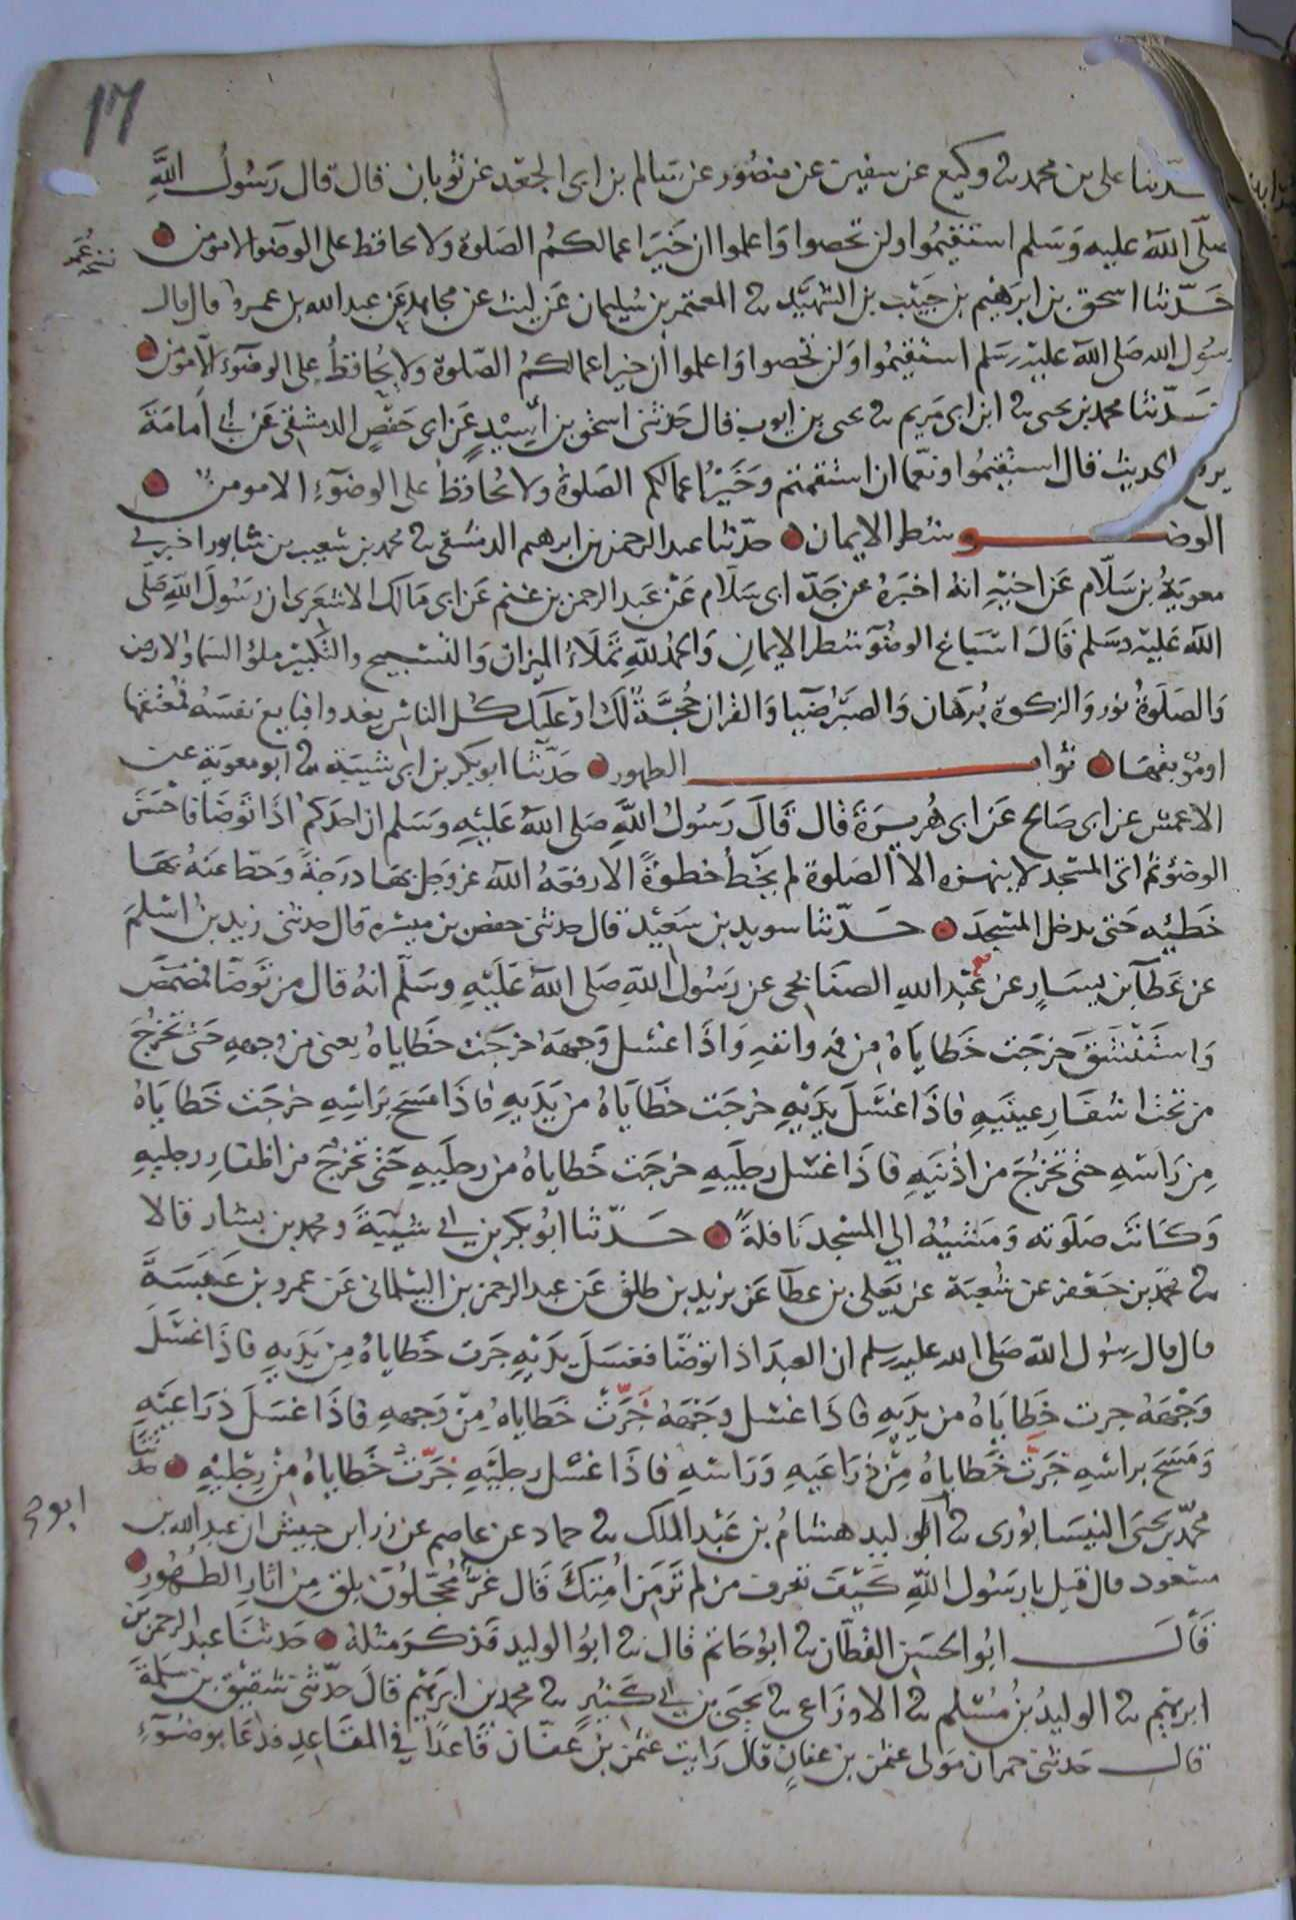 17
حدثنا على بن محمد ثنا وكيع عن سفين عن منصور عن سالم بن ابى الجعد عن ثوبان قال قال رسول الله
صلى الله عليه وسلم استقيموا ولن تحصوا واعلموا ان خير اعمالكم الصلوة ولا يحافظ على الوضو الا مومن
حدثنا اسحق بن ابرهيم بن حبيب بن الشهيد ثنا المعتمر بن سليمان عن ليث عن مجاهد عن عبد الله بن عمرو قال قال
رسول الله صلى الله عليه وسلم استقيموا ولن تحصوا واعلموا ان خير اعمالكم الصلوة ولا يحافظ على الوضوء الا مومن
حدثنا محمد بن يحيى ثنا ابن ابى مريم ثنا يحيى بن ايوب قال حدثنى اسحق بن اسيد عن ابى حفص الدمشقى عن ابي امامة
يرفع الحديث قال استقيموا ونعما ان استقمتم وخير اعمالكم الصلوة ولا يحافظ على الوضوء الا مومن
الوضو شطر الايمان حدثنا عبد الرحمن بن ابرهيم الدمشقى ثنا محمد بن شعيب بن شابور اخبرني
معوية بن سلام عن اخيه انه اخبره عن جده ابى سلام عن عبد الرحمن بن غنم عن ابى مالك الاشعرى ان رسول الله صلى
الله عليه وسلم قال اسباغ الوضو شطر الايمان والحمد لله تملاء الميزان والتسبيح والتكبير ملو السماوالارض
والصلوة نور والزكوة برهان والصبر ضيا والقران حجة لك او عليك كل الناس يغدوا فبايع نفسه فمعتقها
او موبقها ثواب الطهور حدثنا ابو بكر بن ابى شيبة ثنا ابو معوية عن
الاعمش عن ابى صالح عن ابى هريرة قال قال رسول الله صلى الله عليه وسلم ان احدكم اذا توضا فاحسن
الوضو ثم اتى المسجد لا ينهزه الا الصلوة لم يخط خطوة الا رفعه الله عز وجل بها درجة وحط عنه بها
خطيئه حتى يدخل المسجد حدثنا سويد بن سعيد قال حدثنى حفص بن ميسره قال حدثنى زيد بن اسلم
عن عطآ بن يسار عن عبد الله الصنابحى عن رسول الله صلى الله عليه وسلم انه قال من توضا فمضمض
واستنشق خرجت خطاياه من فيه وانفه واذا غسل وجهه خرجت خطاياه يعنى من وجهه حتى تخرج
من تحت اشفار عينيه فاذا غسل يديه خرجت خطاياه من يديه فاذا مسح براسه خرجت خطاياه
من راسه حتى تخرج من اذنيه فاذا غسل رجليه خرجت خطاياه من رجليه حتى تخرج من اظفار رجليه
وكانت صلوته ومشيه الي المسجد نافلة حدثنا ابو بكر بن ابي شيبة ومحمد بن بشار قالا
ثنا محمد بن جعفر عن شعبة عن يعلى بن عطآ عن يزيد بن طلق عن عبد الرحمن بن البيلمانى عن عمرو بن عبسة
قال قال رسول الله صلى الله عليه وسلم ان العبد اذا توضا فغسل يديه جرت خطاياه من يديه فاذا غسل
وجهه جرت خطاياه من يديه فاذا غسل وجهه خرت خطاياه من وجهه فاذا غسل ذراعيه
ومسح براسه خرت خطاياه من ذراعيه وراسه فاذا غسل رجليه خرت خطاياه من رجليه حدثنا
محمد بن يحيى النيسابورى ثنا ابو الوليد هشام بن عبد الملك ثنا حماد عن عاصم عن زر ابن حبيش ان عبد الله بن
مسعود قال قيل يا رسول الله كيف تعرف من لم تر من امتك قال غر محجلون بلق من اثار الطهور
قال ابو الحسن القطان ثنا ابو حاتم قال ثنا ابو الوليد فذكر مثله حدثنا عبد الرحمن بن
ابرهيم ثنا الوليد بن مسلم ثنا الاوزاعى ثنا يحيى بن ابي كثير ثنا محمد بن ابرهيم قال حدثنى شقيق بن سلمة
قال حدثنى حمران مولى عثمن بن عفان قال رايت عثمن بن عفان قاعدا في المقاعد فدعا بوضوء